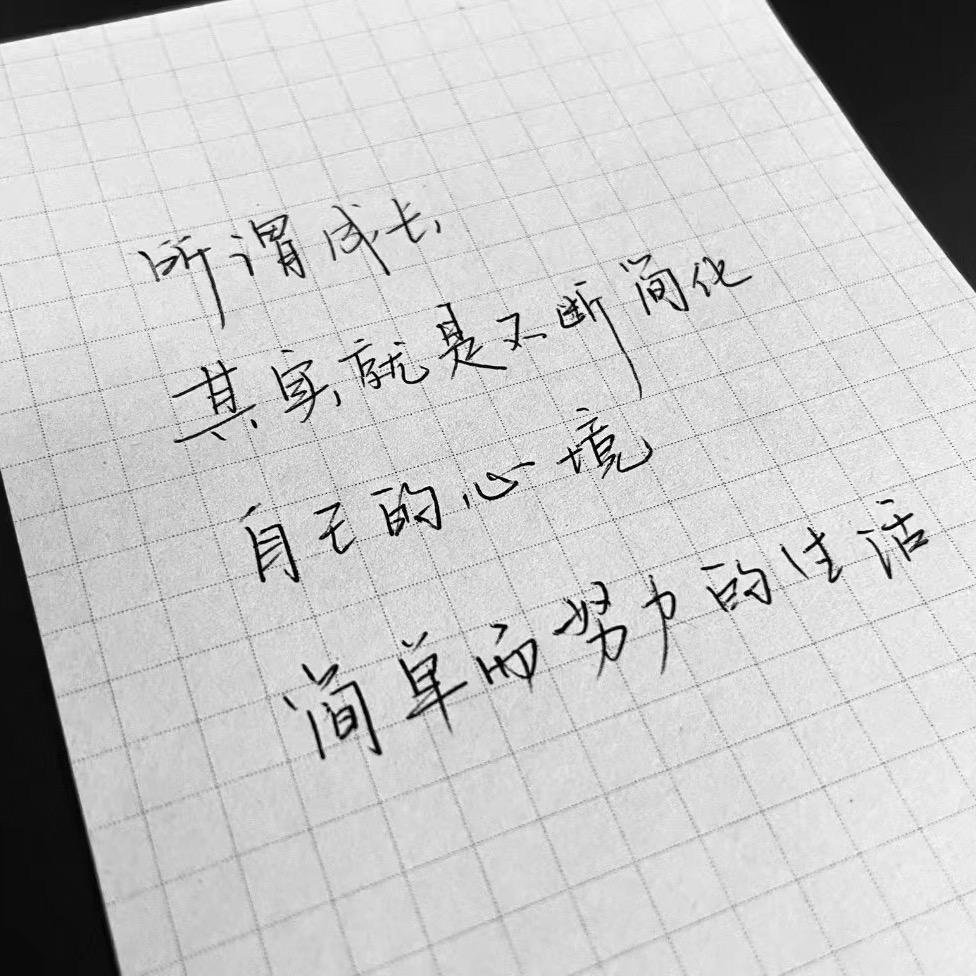 所谓成长
其实就是不断简化
自己的心境
简单而努力的生活